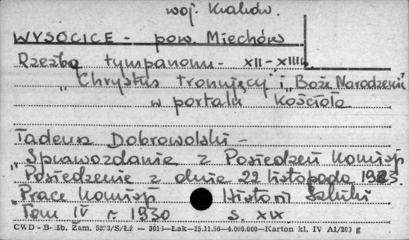 woj. Kraków.
WYSOCICE - pow. Miechów
Rzeźba tympanonu - XII - XIII w.
"Chrystus tronujący" i "Boże Narodzenie"
w portalu Kościoła
Tadeusz Dobrowolski -
"Sprawozdanie z Posiedzeń Komisji
Posiedzenie z dnia 22 listopada 1923.
"Prace Komisji Historii Sztuki
Tom IV r. 1930 s. XIX
CWD - B-85b. Zam. /S/Łż — Łak—15.11.56—4.000.000—Karton kl. IV A1/200 g